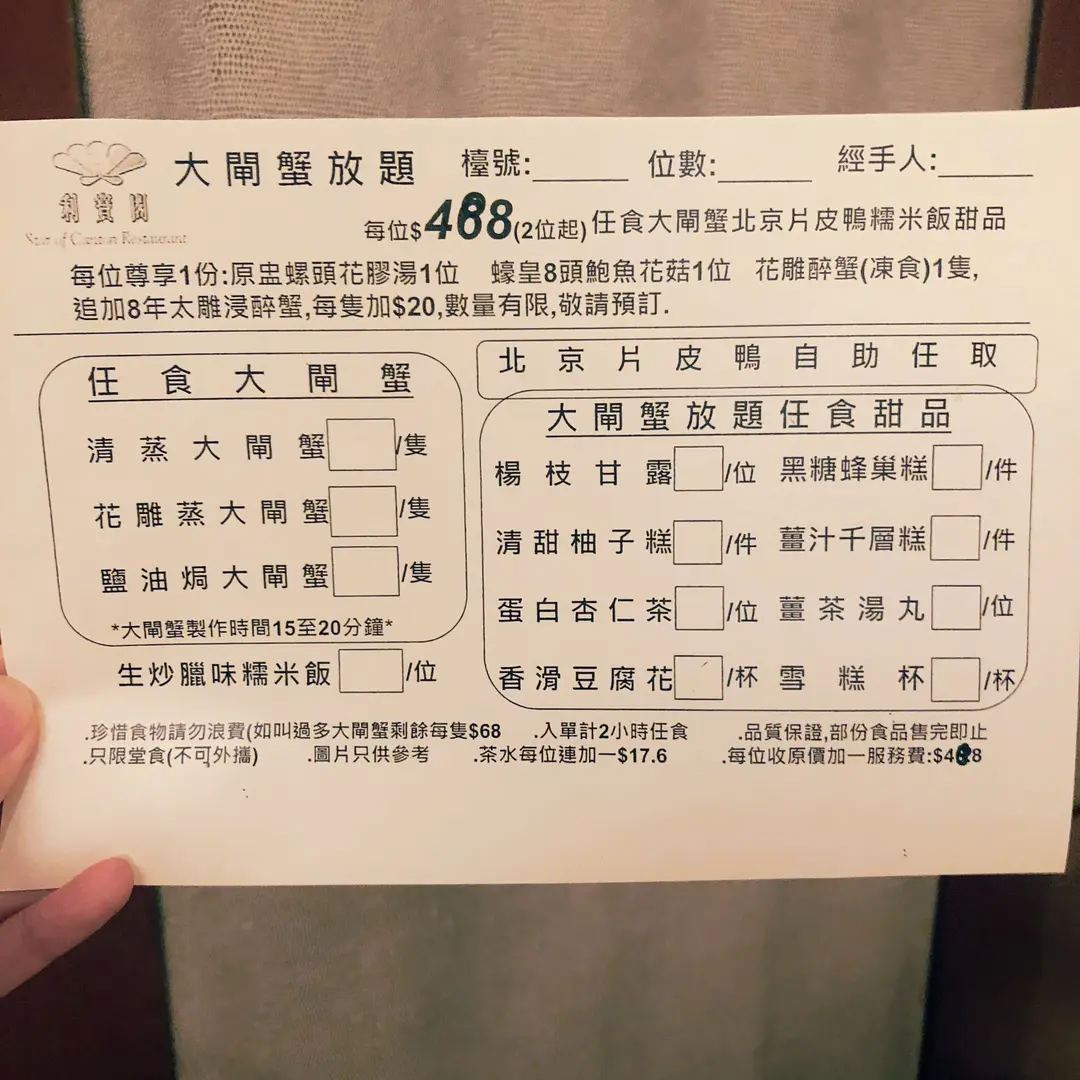 利寶閣
Star of Canton Restaurant
大閘蟹放題 檯號:______ 位數:______ 經手人:______
每位$488(2位起)任食大閘蟹北京片皮鴨糯米飯甜品
每位尊享1份:原盅螺頭花膠湯1位 蠔皇8頭鮑魚花菇1位 花雕醉蟹(凍食)1隻,
追加8年太雕浸醉蟹,每隻加$20,數量有限,敬請預訂.
任食大閘蟹
清蒸大閘蟹 /隻
花雕蒸大閘蟹 /隻
鹽油焗大閘蟹 /隻
*大閘蟹製作時間15至20分鐘*
生炒臘味糯米飯 /位
北京片皮鴨自助任取
大閘蟹放題任食甜品
楊枝甘露 /位 黑糖蜂巢糕 /件
清甜柚子糕 /件 薑汁千層糕 /件
蛋白杏仁茶 /位 薑茶湯丸 /位
香滑豆腐花 /杯 雪糕杯 /杯
.珍惜食物請勿浪費(如叫過多大閘蟹剩餘每隻$68 .入單計2小時任食 .品質保證,部份食品售完即止
.只限堂食(不可外攜) .圖片只供參考 .茶水每位連加一$17.6 .每位收原價加一服務費: